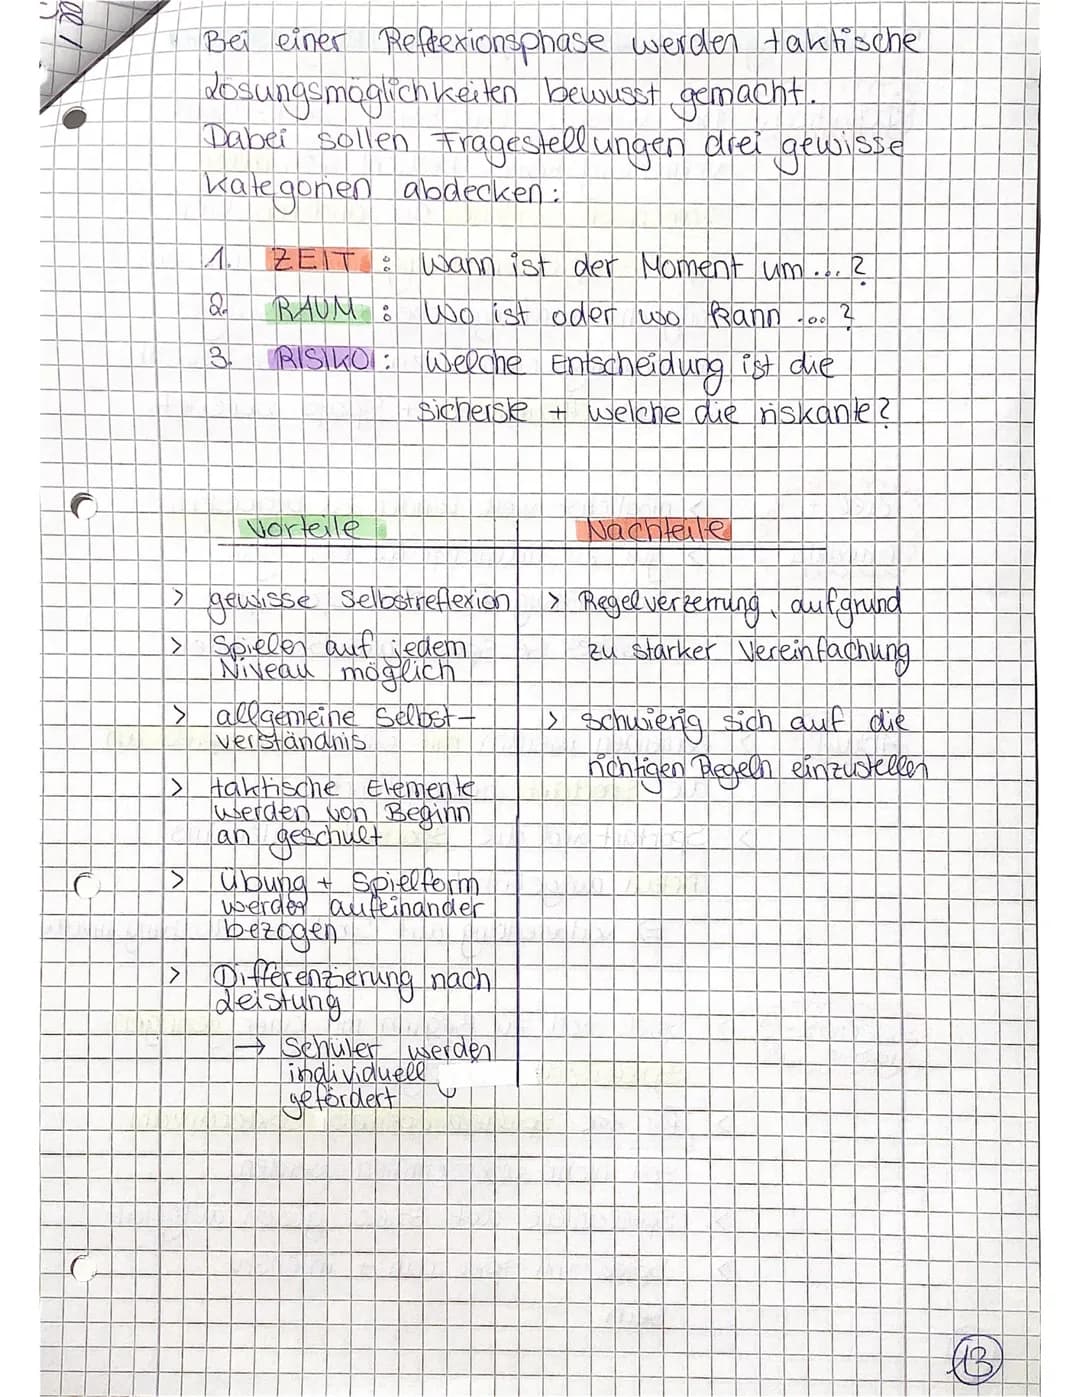 Bei einer Reflexionsphase werden taktische
Lösungsmöglichkeiten bewusst gemacht.
Dabei sollen Fragestellungen drei gewisse
Kategorien abdecken:
1. ZEIT : Wann ist der Moment um ... ?
2. RAUM : Wo ist oder wo kann ... ?
3. RISIKO : Welche Entscheidung ist die
sicherste + welche die riskante?
Vorteile
> gewisse Selbstreflexion
> Spielen auf jedem
Niveau möglich
> allgemeine Selbst-
verständnis
> taktische Elemente
werden von Beginn
an geschult
> Übung + Spielform
werden aufeinander
bezogen
> Differenzierung nach
Leistung
→ Schüler werden
individuell
gefördert
Nachteile
> Regelverzerrung, aufgrund
zu starker Vereinfachung
> schwierig sich auf die
richtigen Regeln einzustellen
13